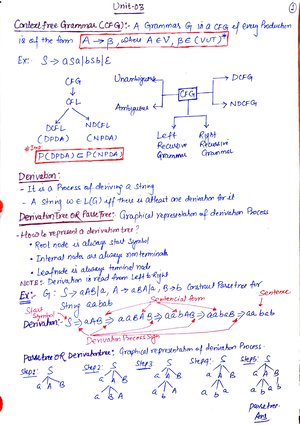 Unit-03
①
Context free Grammar (CFG):- A Grammar G is a CFG if every Production
is of the form A → β, where A∈V, β∈(VUT)*
Ex: S → aSa|bSb|ε
CFG
↓
CFL
DCFL NDCFL
(DPDA) (NPDA)
* Imp
P(DPDA) ⊆ P(NPDA)
Unambiguous DCFG
CFG
Ambiguous NDCFG
Left Recursive Grammar
Right Recursive Grammar
Derivation:-
- It is a Process of deriving a string
- A String w∈L(G) iff there is atleast one derivation for it
Derivation Tree OR Parse Tree:- Graphical representation of derivation Process
- How to represent a derivation tree?
• Root node is always start symbol
• Internal node are always nonterminals
• Leaf node is always terminal node
NOTE:- Derivation is read from Left to Right
Ex:- G: S → aAB|a, A → aBA|a, B → b Construct Parse tree for
String aabab
Sentencial form Sentence
Start Symbol
Derivation:- S ⇒ aAB ⇒ aaBAB ⇒ aabAB ⇒ aabaB ⇒ aabab
Derivation Process sign
Parse tree OR Derivation tree: Graphical representation of derivation Process.
Step1: S Step2: S Step3 S Step4: S Step5: S
a A B a A B a A B a A B a A B
a B A
Parse tree
Ans